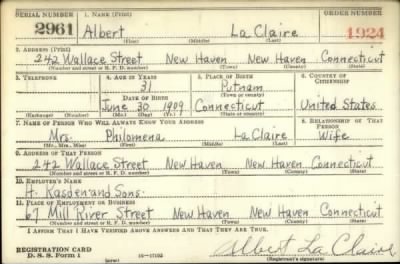 SERIAL NUMBER 1. NAME (Print) ORDER NUMBER
2961 Albert La Claire 1924
(First) (Middle) (Last)
2. ADDRESS (Print)
242 Wallace Street New Haven New Haven Connecticut
(Number and street or R. F. D. number) (Town) (County) (State)
3. TELEPHONE 4. AGE IN YEARS 5. PLACE OF BIRTH 6. COUNTRY OF CITIZENSHIP
31 Putnam
DATE OF BIRTH (Town or county)
June 30 1909 Connecticut United States
(Exchange) (Number) (Mo.) (Day) (Yr.) (State or country)
7. NAME OF PERSON WHO WILL ALWAYS KNOW YOUR ADDRESS 8. RELATIONSHIP OF THAT PERSON
Mrs. Philomena La Claire Wife
(Mr., Mrs., Miss) (First) (Middle) (Last)
9. ADDRESS OF THAT PERSON
242 Wallace Street New Haven New Haven Connecticut
(Number and street or R. F. D. number) (Town) (County) (State)
10. EMPLOYER'S NAME
H. Rasden and Sons.
11. PLACE OF EMPLOYMENT OR BUSINESS
67 Mill River Street New Haven New Haven Connecticut
(Number and street or R. F. D. number) (Town) (County) (State)
I AFFIRM THAT I HAVE VERIFIED ABOVE ANSWERS AND THAT THEY ARE TRUE.
REGISTRATION CARD
D. S. S. Form 1 (over) 16-17105 Albert La Claire
(Registrant's signature)